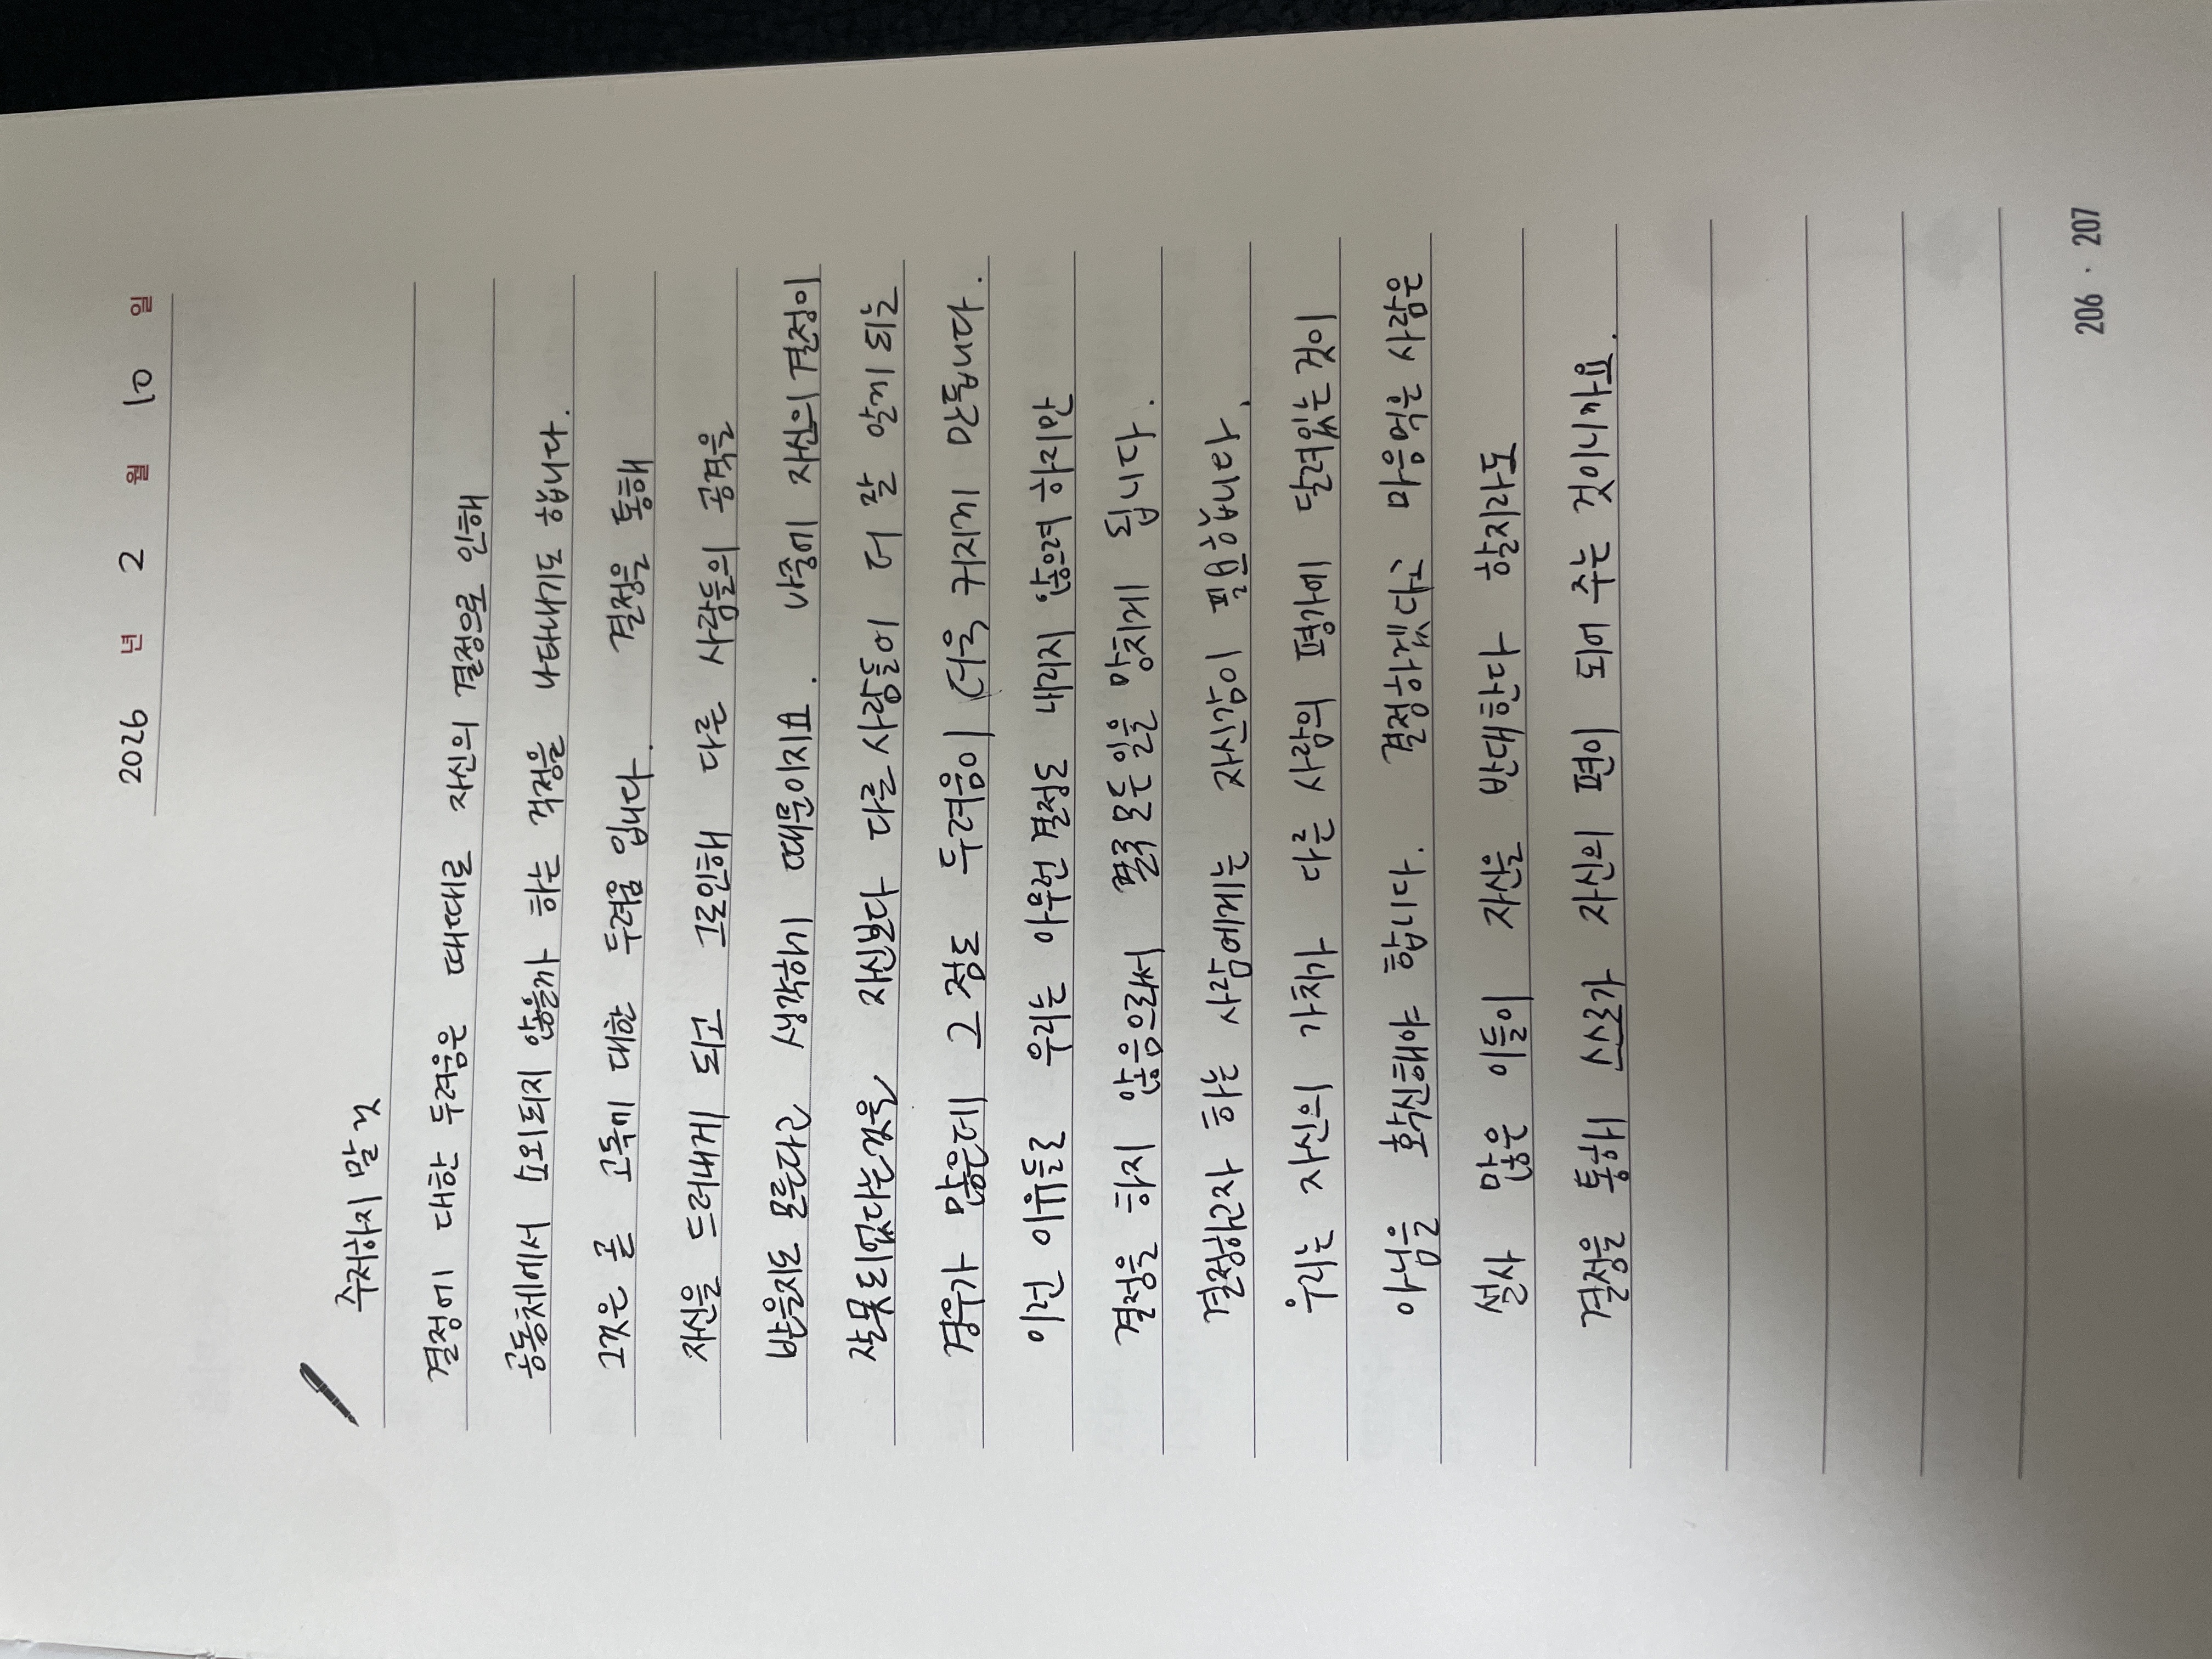 2026 년 2 월 10 일
주저하지 말 것
결정에 대한 두려움은 때때로 자신의 결정으로 인해
공동체에서 소외되지 않을까 하는 걱정을 나타내기도 합니다.
그것은 곧 고독에 대한 두려움 입니다. 결정을 통해
자신을 드러내게 되고 그로인해 다른 사람들의 공격을
받을지도 모른다고 생각하기 때문이지요. 나중에 자신의 결정이
잘못되었다는것을 자신보다 다른 사람들이 더 잘 알게 되는
경우가 많은데 그 정도 두려움이 더욱 커지게 만듭니다.
이런 이유들로 우리는 아무런 결정도 내리지 않으려 하지만
결정을 하지 않음으로써 결국 모든 일을 망치게 됩니다.
결정하고자 하는 사람에게는 자신감이 필요합니다.
우리는 자신의 가치가 다른 사람의 평가에 달려있는 것이
아님을 확신해야 합니다. 결정하겠다고 마음먹은 사람은
설사 많은 이들이 자신을 반대한다 할지라도
결정을 통해 스스로가 자신의 편이 되어 주는 것이니까요.
206 · 207